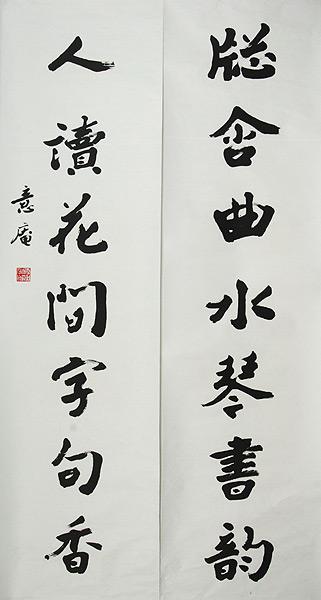 牕含曲水琴書韻
人讀花間字句香
意庵